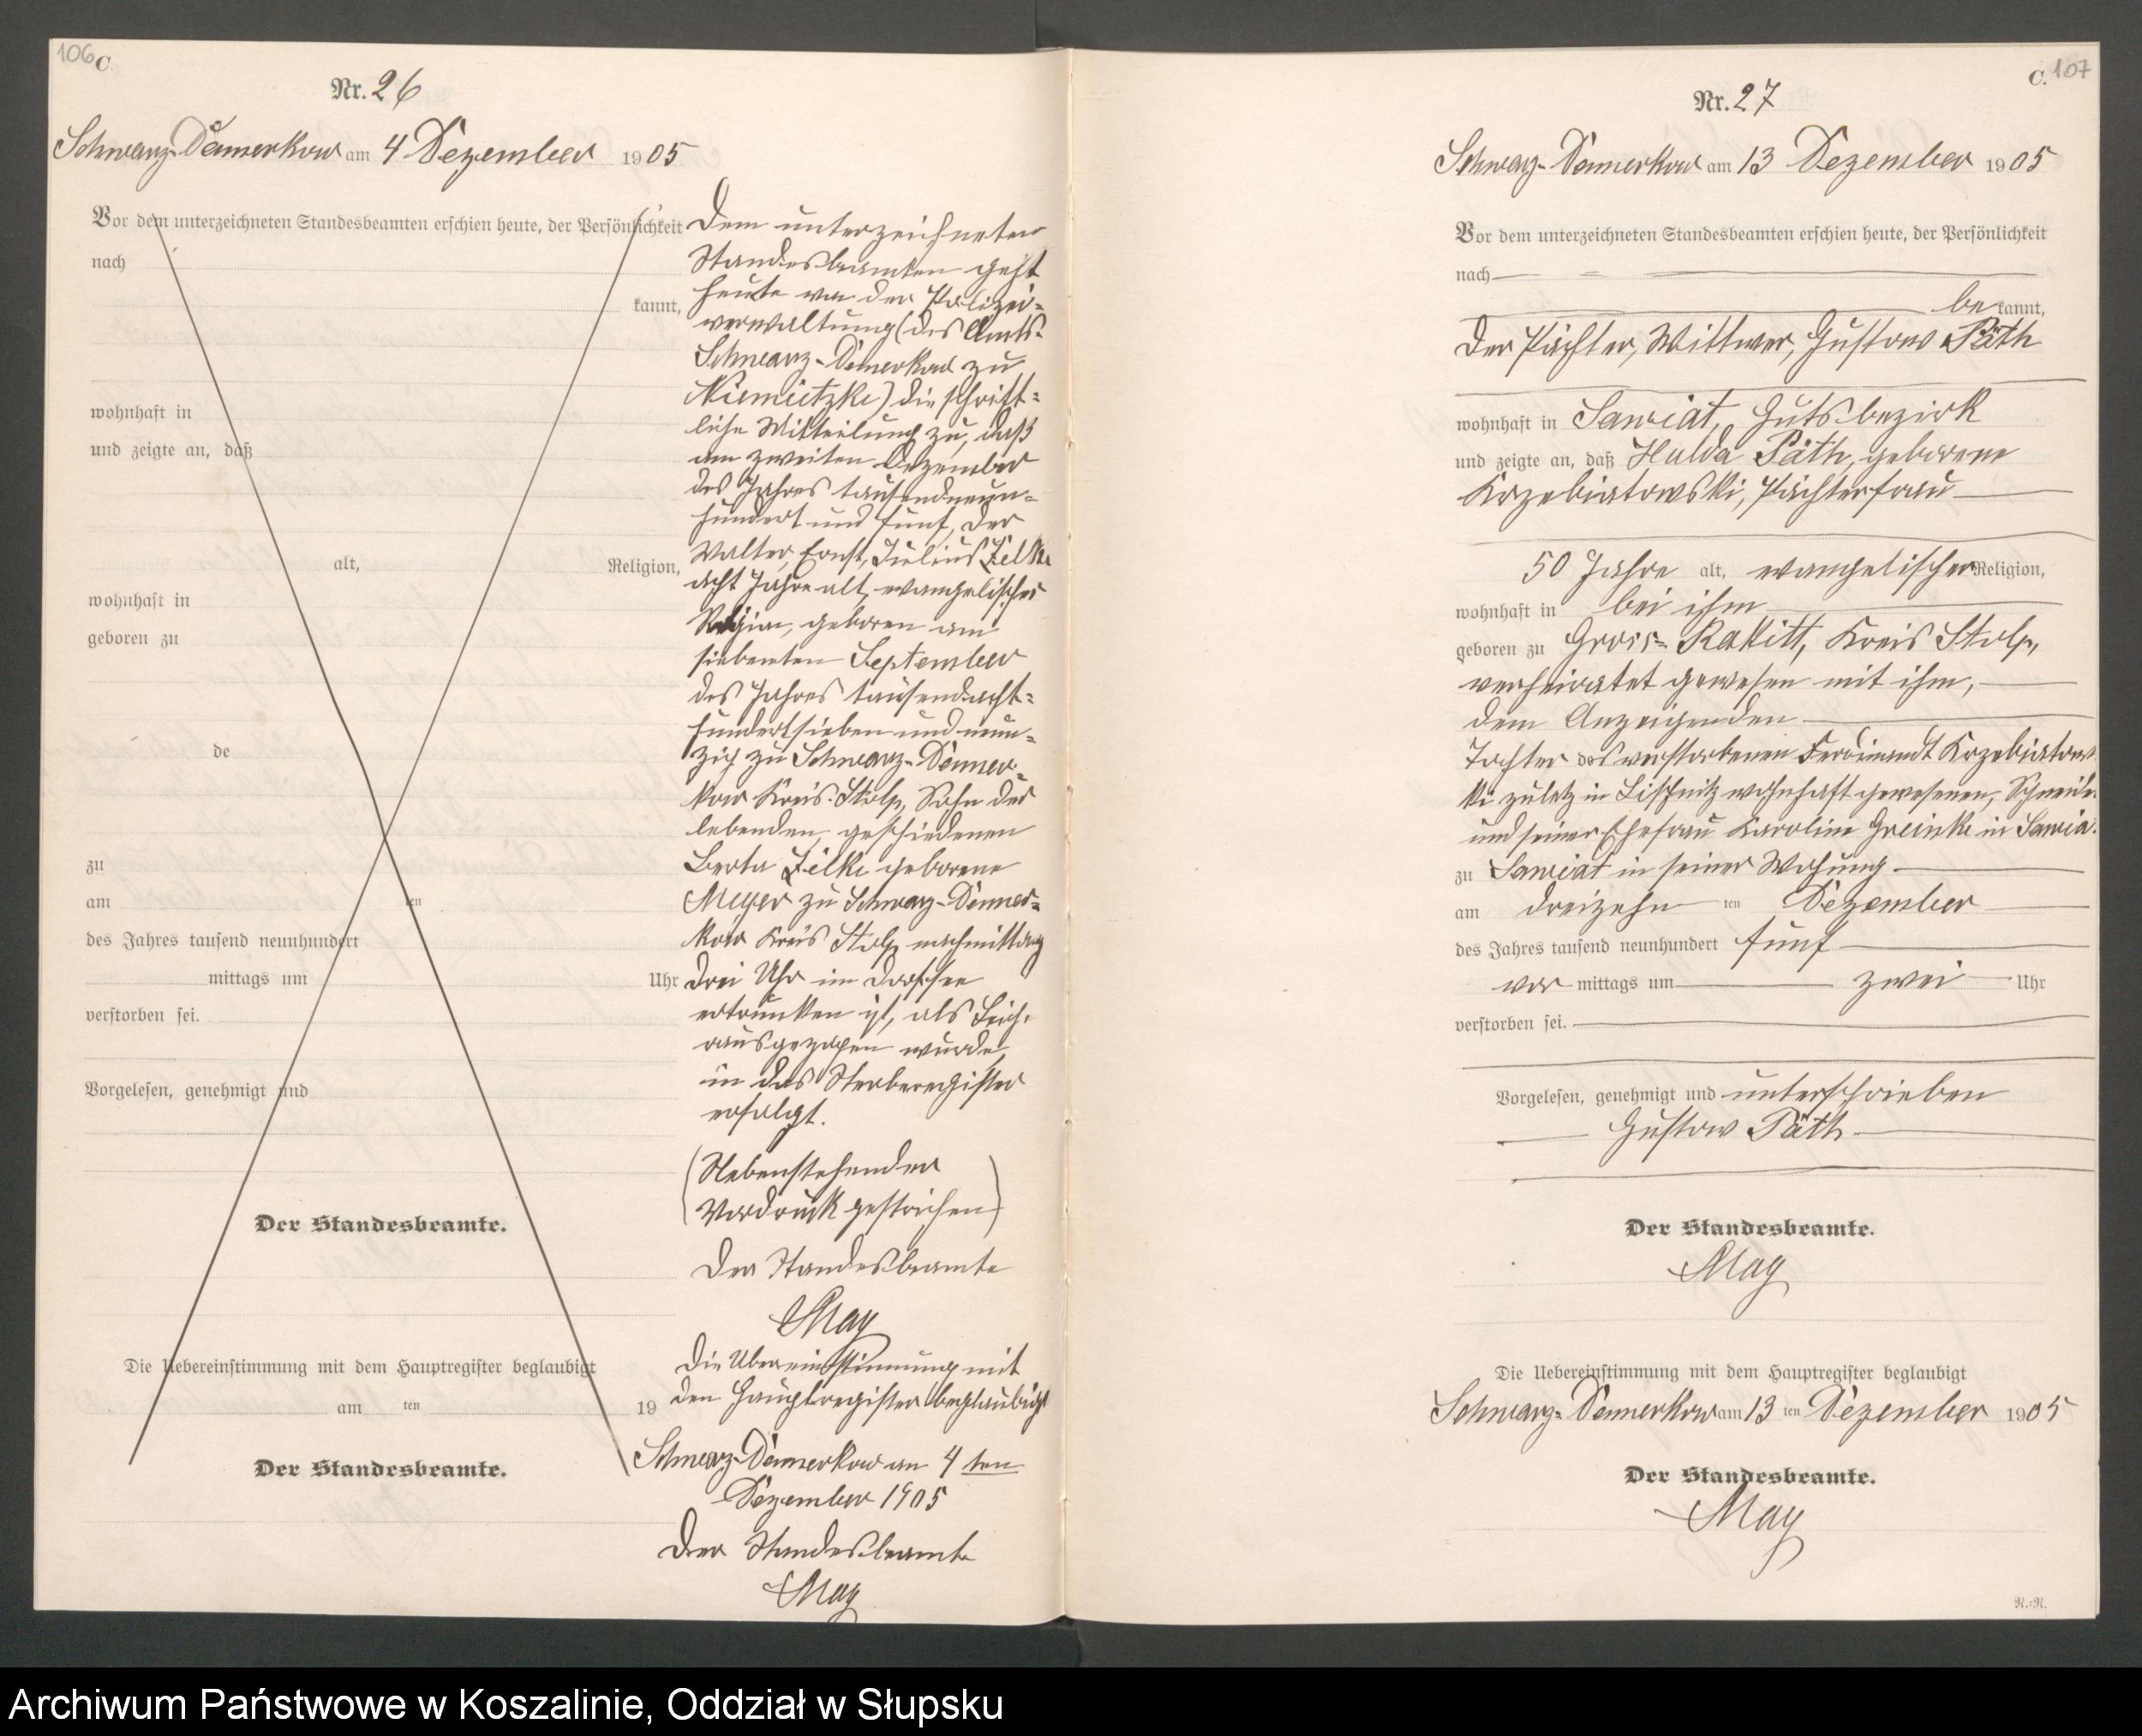 106 C
Nr. 26
Schwarz-Damerkow am 4 Dezember 1905
Vor dem unterzeichneten Standesbeamten erschien heute, der Persönlichkeit
nach
kannt,
wohnhaft in
und zeigte an, daß
alt, Religion,
wohnhaft in
geboren zu
de
zu
am ten
des Jahres tausend neunhundert
mittags um Uhr
verstorben sei.
Vorgelesen, genehmigt und
Der Standesbeamte.
Die Uebereinstimmung mit dem Hauptregister beglaubigt
am ten 19
Der Standesbeamte.
Dem unterzeichneten
Standesbeamten geht
heute von der Polizei-
verwaltung (des Amts-
Schwarz-Damerkow zu
Niemietzke) die schrift-
liche Mitteilung zu, daß
am zweiten Dezember
des Jahres tausendneun-
hundert und fünf, der
Walter, Ernst, Julius Zelke
acht Jahre alt, evangelischer
Religion, geboren am
siebenten September
des Jahres tausendacht-
hundertsieben und neun-
zig zu Schwarz-Damer-
kow Kreis Stolp, Sohn der
lebenden, geschiedenen
Berta Zelke geborene
Meyer zu Schwarz-Damer-
kow Kreis Stolp nachmittag
drei Uhr im Dorfsee
ertrunken ist, als Leich.
rausgezogen wurde,
in das Sterberegister
erfolgt.
(Nebenstehender
Vordruck gestrichen)
Der Standesbeamte
May
Die Ubereinstimmung mit
den Hauptregister beglaubigt
Schwarz-Damerkow am 4 ten
Dezember 1905
Der Standesbeamte
May
C. 107
Nr. 27
Schwarz-Damerkow am 13 Dezember 1905
Vor dem unterzeichneten Standesbeamten erschien heute, der Persönlichkeit
nach
be kannt,
der Pächter, Wittwer, Gustav Päth
wohnhaft in Sawiat, Gutsbezirk
und zeigte an, daß Hulda Päth, geborene
Krzebiatowski, Pächterfrau
50 Jahre alt, evangelischer Religion,
wohnhaft in bei ihm
geboren zu Gross-Rakitt, Kreis Stolp,
verheiratet gewesen mit ihm,
dem Anzeigenden
Tochter des verstorbenen Ferdinandt Krzebiatows
ki zuletz in Lischnitz wohnhaft gewesenen, Schneider
und seiner Ehefrau Karoline Greinke in Sawia.
zu Sawiat in seiner Wohung
am dreizehn ten Dezember
des Jahres tausend neunhundert fünf
vor mittags um zwei Uhr
verstorben sei.
Vorgelesen, genehmigt und unterschrieben
Gustav Päth
Der Standesbeamte.
May
Die Uebereinstimmung mit dem Hauptregister beglaubigt
Schwarz-Damerkow am 13 ten Dezember 1905
Der Standesbeamte.
May
N.-N.
Archiwum Państwowe w Koszalinie, Oddział w Słupsku